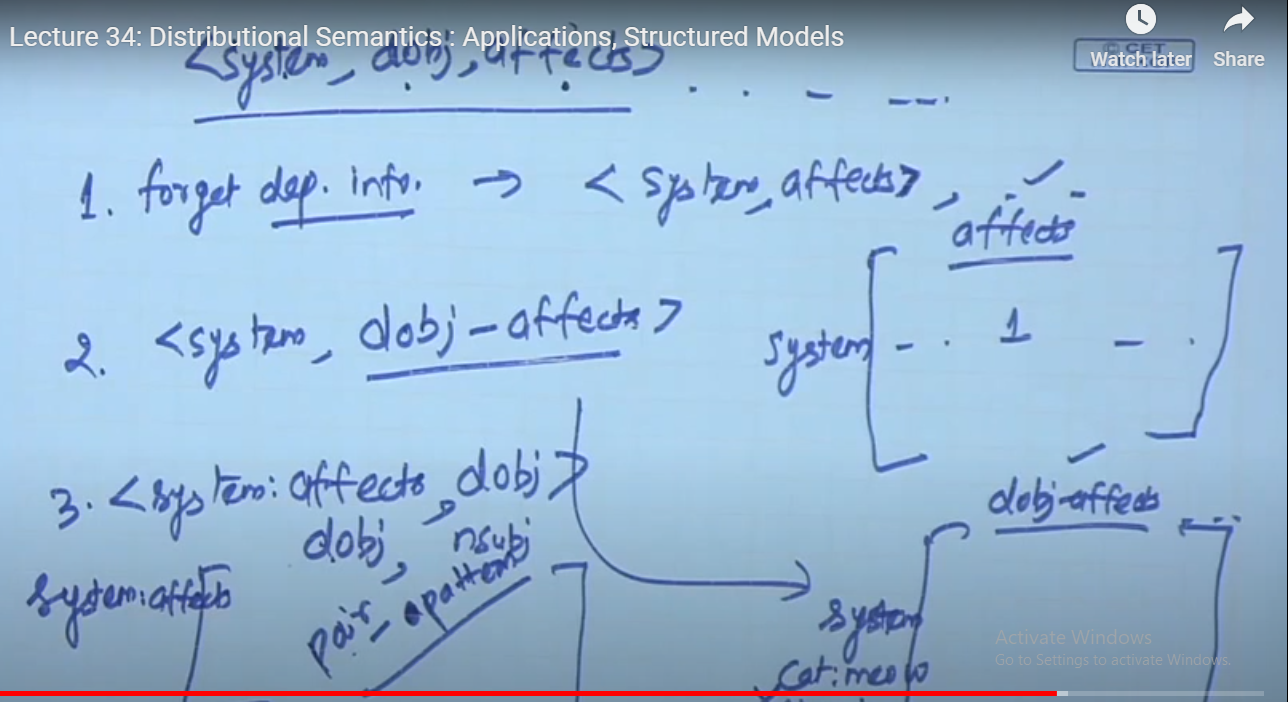 Lecture 34: Distributional Semantics : Applications, Structured Models
Watch later
Share
<system, dobj, affects>
1. forget dep. info. → <system, affects>,
affects
system
1
2. <system, dobj-affects>
3. <system: affects, dobj>
dobj, nsubj
pair-pattern
system:affects
dobj-affects
system
cat: meow
Activate Windows
Go to Settings to activate Windows.